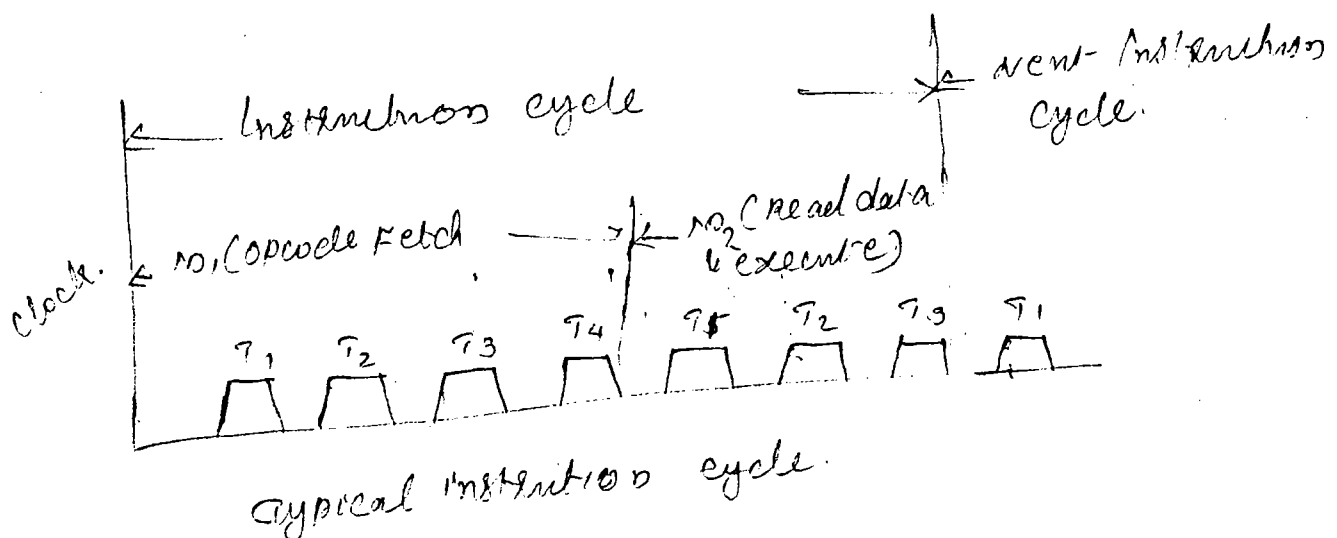 Instruction cycle
Next Instruction
cycle.
M1 (Opcode Fetch
M2 (Read data
& execute)
Clock.
T1 T2 T3 T4 T1 T2 T3 T1
Typical instrution cycle.